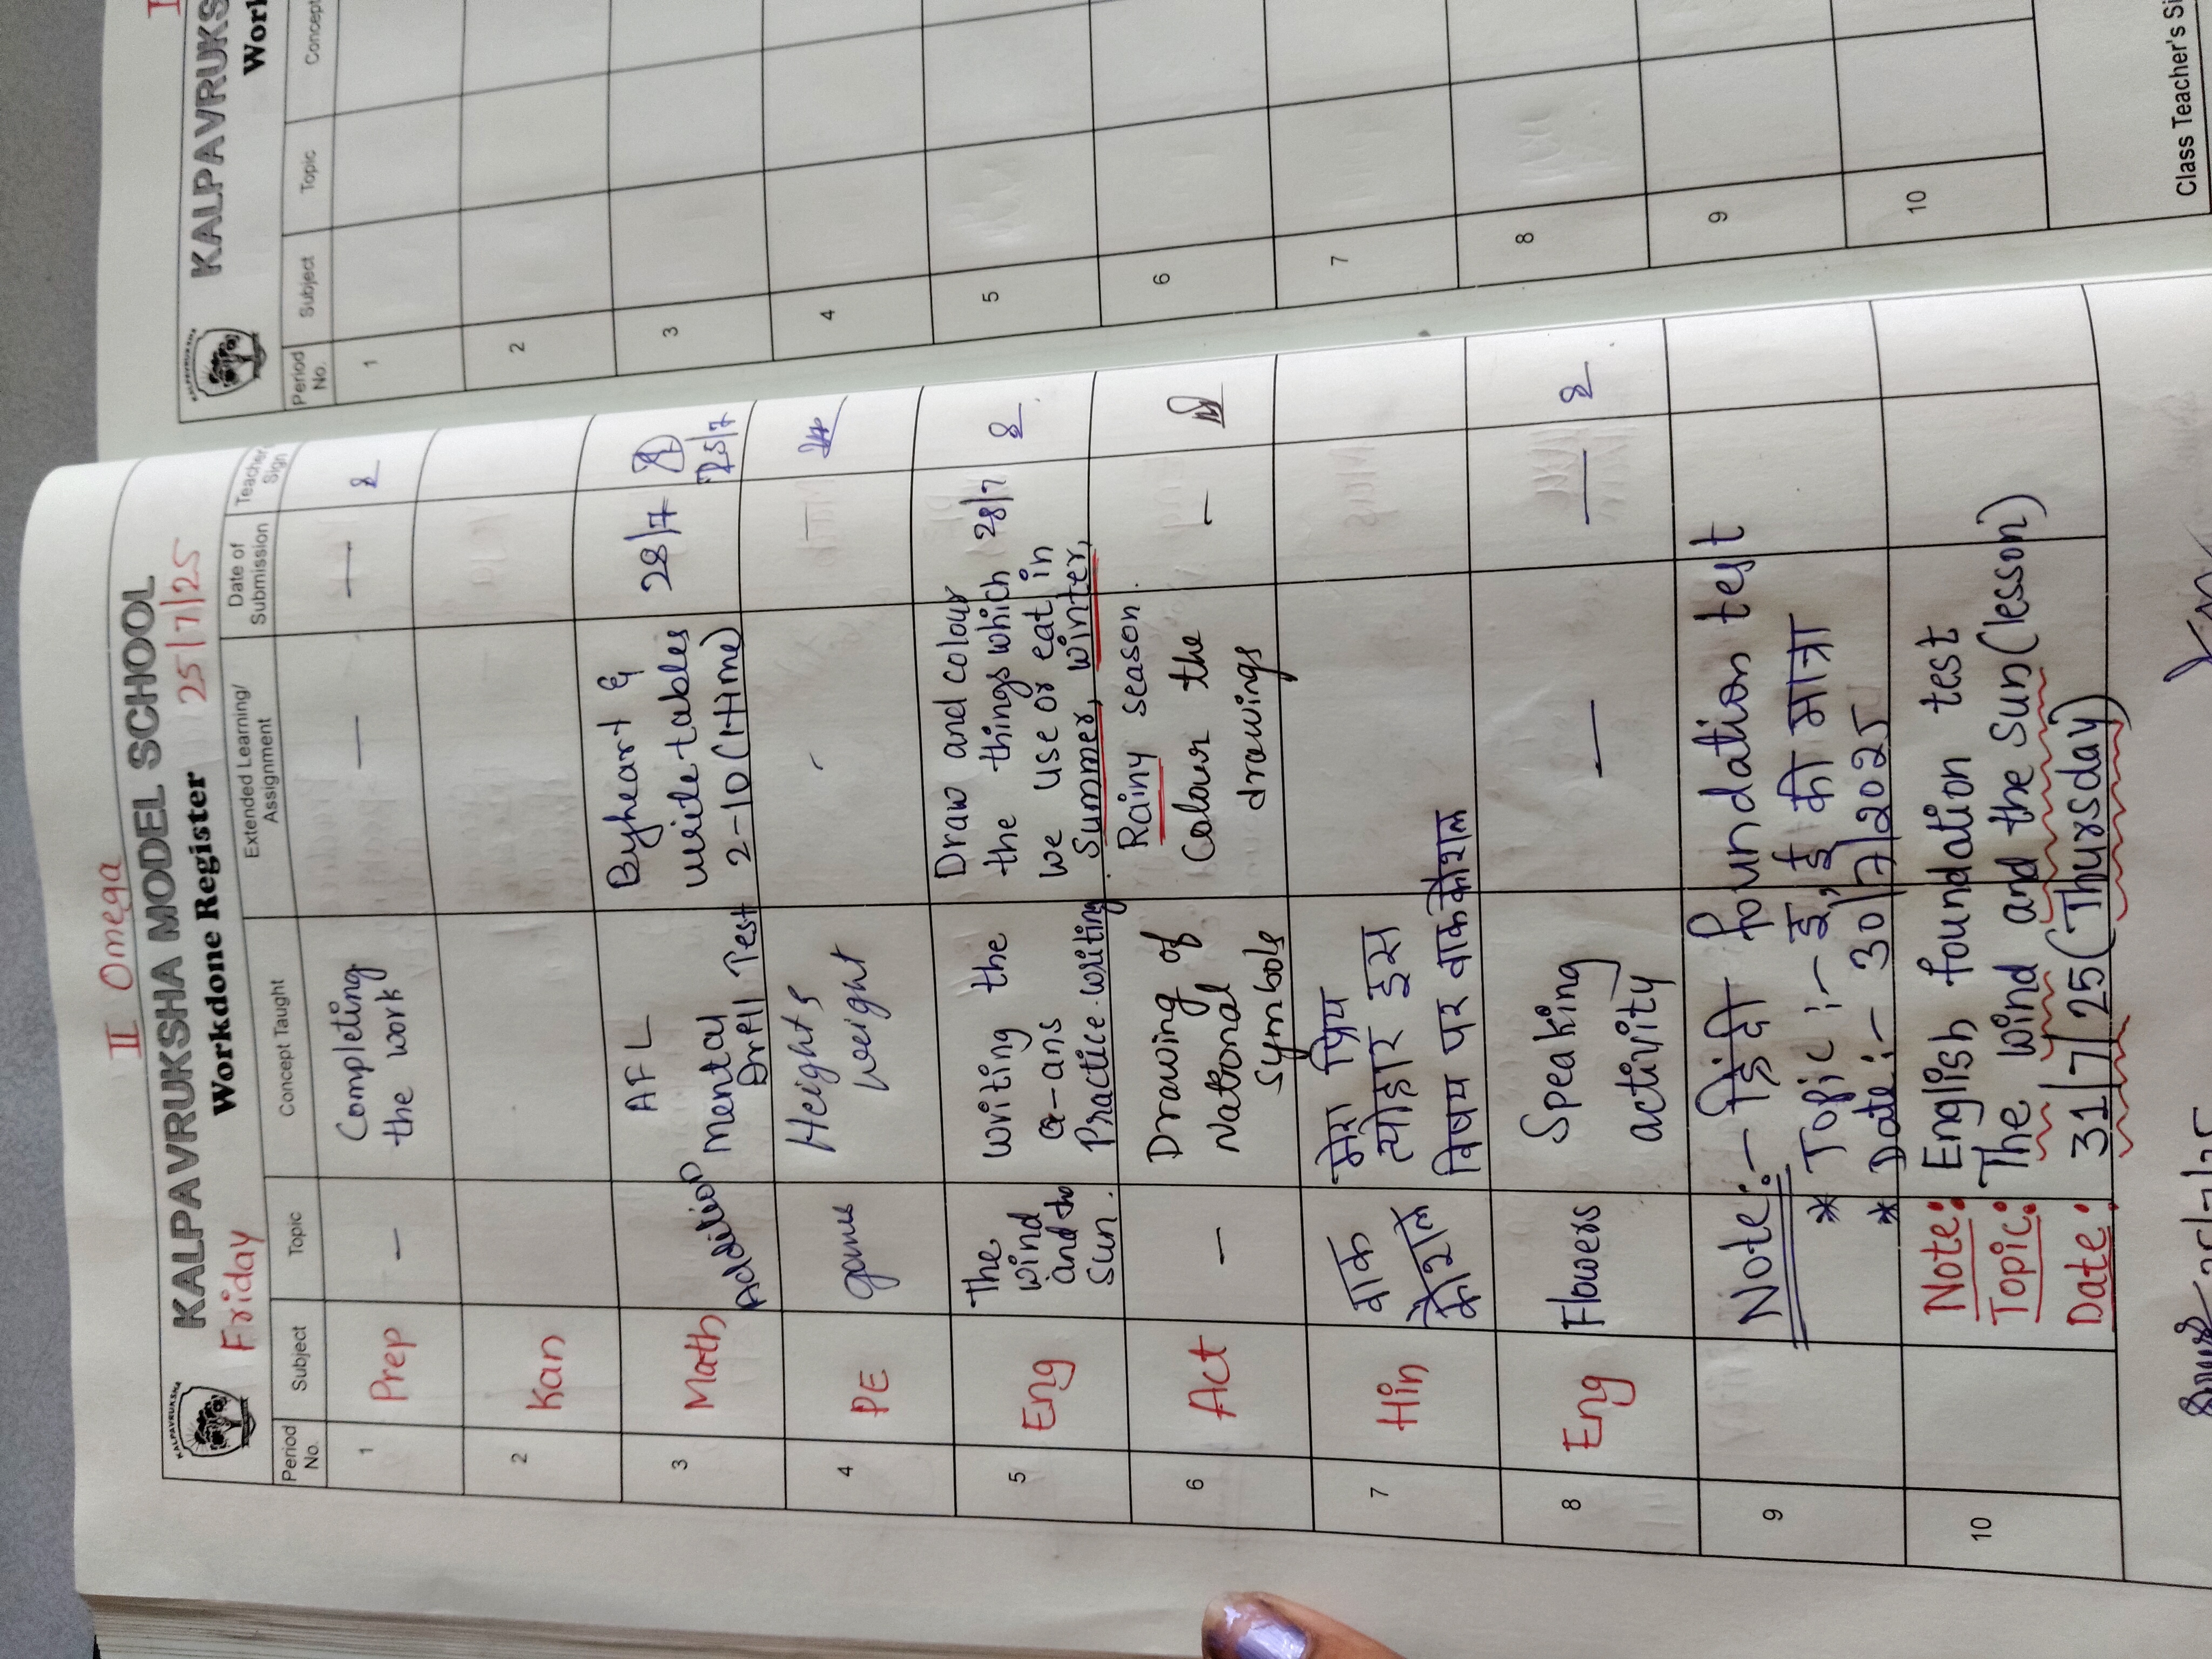 II Omega
KALPAVRUKSHA MODEL SCHOOL
Friday Workdone Register 25/7/25
Period No. Subject Topic Concept Taught Extended Learning/ Assignment Date of Submission Teacher Sign
1 Prep — Completing — —
the work
2 Kan
3 Math Addition AFL Byheart & 28/7
Mental write tables 25/7
Drill Test 2-10 (1 time)
4 PE game Height &
weight
5 Eng The writing the Draw and colour
wind Q-ans the things which 28/7
and the Practice writing we use or eat in
Sun. Summer, winter,
6 Act — Drawing of Rainy season. —
National Colour the
Symbols drawings
7 Hin वाक मेरा प्रिय
कौशल त्योहार इस
विषय पर वाक कौशल
8 Eng Flowers Speaking — —
activity
9 Note:- हिंदी foundation test
* Topic :- इ, ई की मात्रा
* Date :- 30/7/2025
10 Note: English foundation test
Topic: The wind and the Sun (lesson)
Date: 31/7/25 (Thursday)
KALPAVRUKSHA
KALPAVRUKS
Work
Period No. Subject Topic Concept
1
2
3
4
5
6
7
8
9
10
Class Teacher's Si